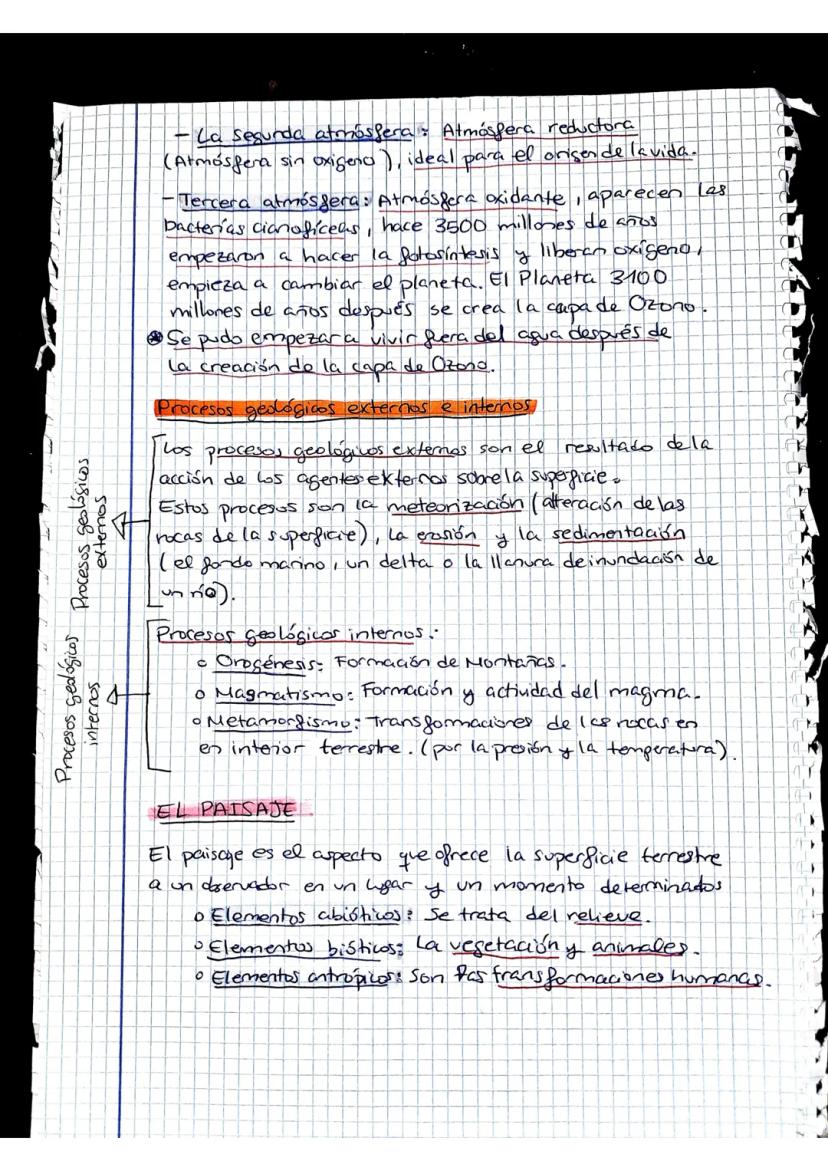 - La segunda atmósfera: Atmósfera reductora
(Atmósfera sin oxigeno), ideal para el origen de la vida.
- Tercera atmósfera: Atmósfera oxidante, aparecen las
bacterias cianofíceas, hace 3500 millones de años
empezaron a hacer la fotosíntesis y liberan oxígeno,
empieza a cambiar el planeta. El Planeta 3100
millones de años después se crea la capa de Ozono.
Se pudo empezar a vivir fuera del agua después de
la creación de la capa de Ozono.
Procesos geológicos externos e internos
Los procesos geológicos externos son el resultado de la
acción de los agentes externos sobre la superficie.
Estos procesos son la meteorización (alteración de las
rocas de la superficie), la erosión y la sedimentación
(el fondo marino, un delta o la llanura de inundación de
un río).
Procesos geológicos externos
Procesos geológicos internos:
o Orogénesis: Formación de Montañas.
o Magmatismo: Formación y actividad del magma.
o Metamorfismo: Transformaciones de las rocas en
en interior terrestre. (por la presión y la temperatura).
Procesos geológicos internos
EL PAISAJE
El paisaje es el aspecto que ofrece la superficie terrestre
a un observador en un lugar y un momento determinados
o Elementos abióticos: Se trata del relieve.
o Elementos bióticos: La vegetación y animales.
o Elementos antrópicos: Son las transformaciones humanas.